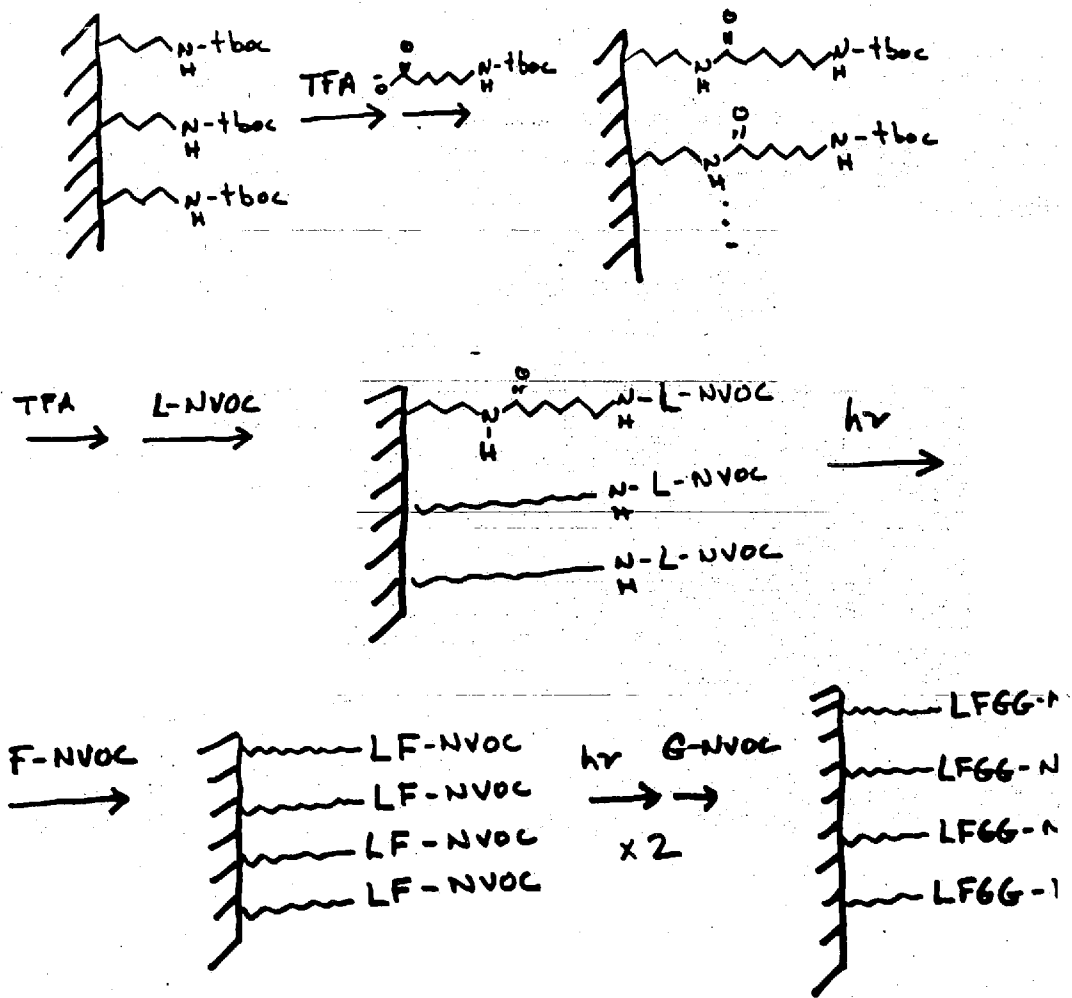 N-tboc
H
N-tboc
H
N-tboc
H
TFA
O
O
N-tboc
H
O
N
H
N-tboc
H
O
N
H
N-tboc
H
TFA
L-NVOC
O
N
H
N-L-NVOC
H
N-L-NVOC
H
N-L-NVOC
H
hν
F-NVOC
LF-NVOC
LF-NVOC
LF-NVOC
LF-NVOC
hν
G-NVOC
x2
LFGG-N
LFGG-N
LFGG-N
LFGG-